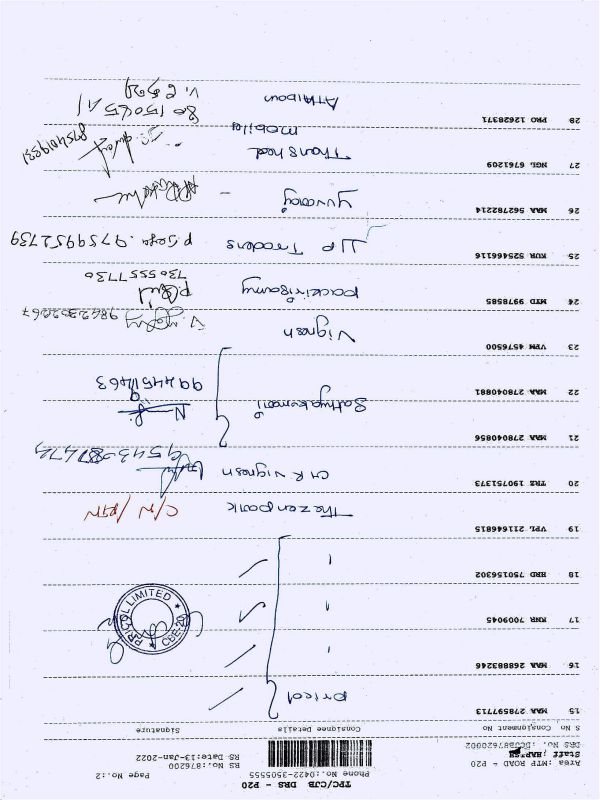 TPC/CJB DRS - P20
Phone No.:0422-3505555
Page No.:2
Area :MTP ROAD - P20
RS No.:876200
Staff :HARISH
RS Date:13-Jan-2022
DRS No. :DCJB87620002
S No Consignment No Consignee Details Signature
15 MAA 278597713 pricol
16 MAA 268883246
17 KNR 7009045
18 HRD 750156302
PRICOL LIMITED CBE-20
19 VPL 211646815 The zen park C/N / RTN
20 TRZ 190751373 CMR Vignesh
21 MAA 278040856
22 MAA 278040881 Sathyakumari 9944511463
23 VPM 4576500 Vignesh 9842302267
24 MTD 9978585 packirisamy 7305557730
25 KUR 525466116 JJP Traders P. Jaya. 9759952739
26 MAA 562782214 Yuvaraj
27 NGL 6761209 Thanshad 8754019331
mobile
28 PRO 12628371